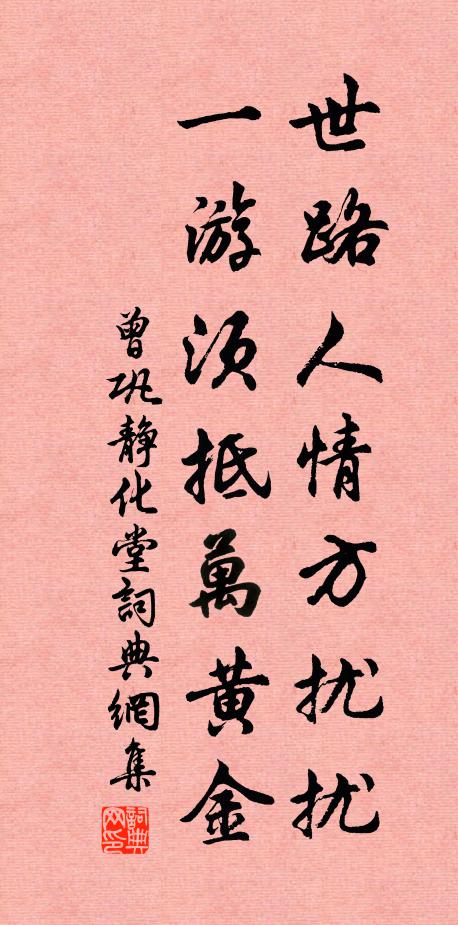 世路人情方扰扰
一游须抵萬黄金
曾巩静化堂詞典網集
詞典网印